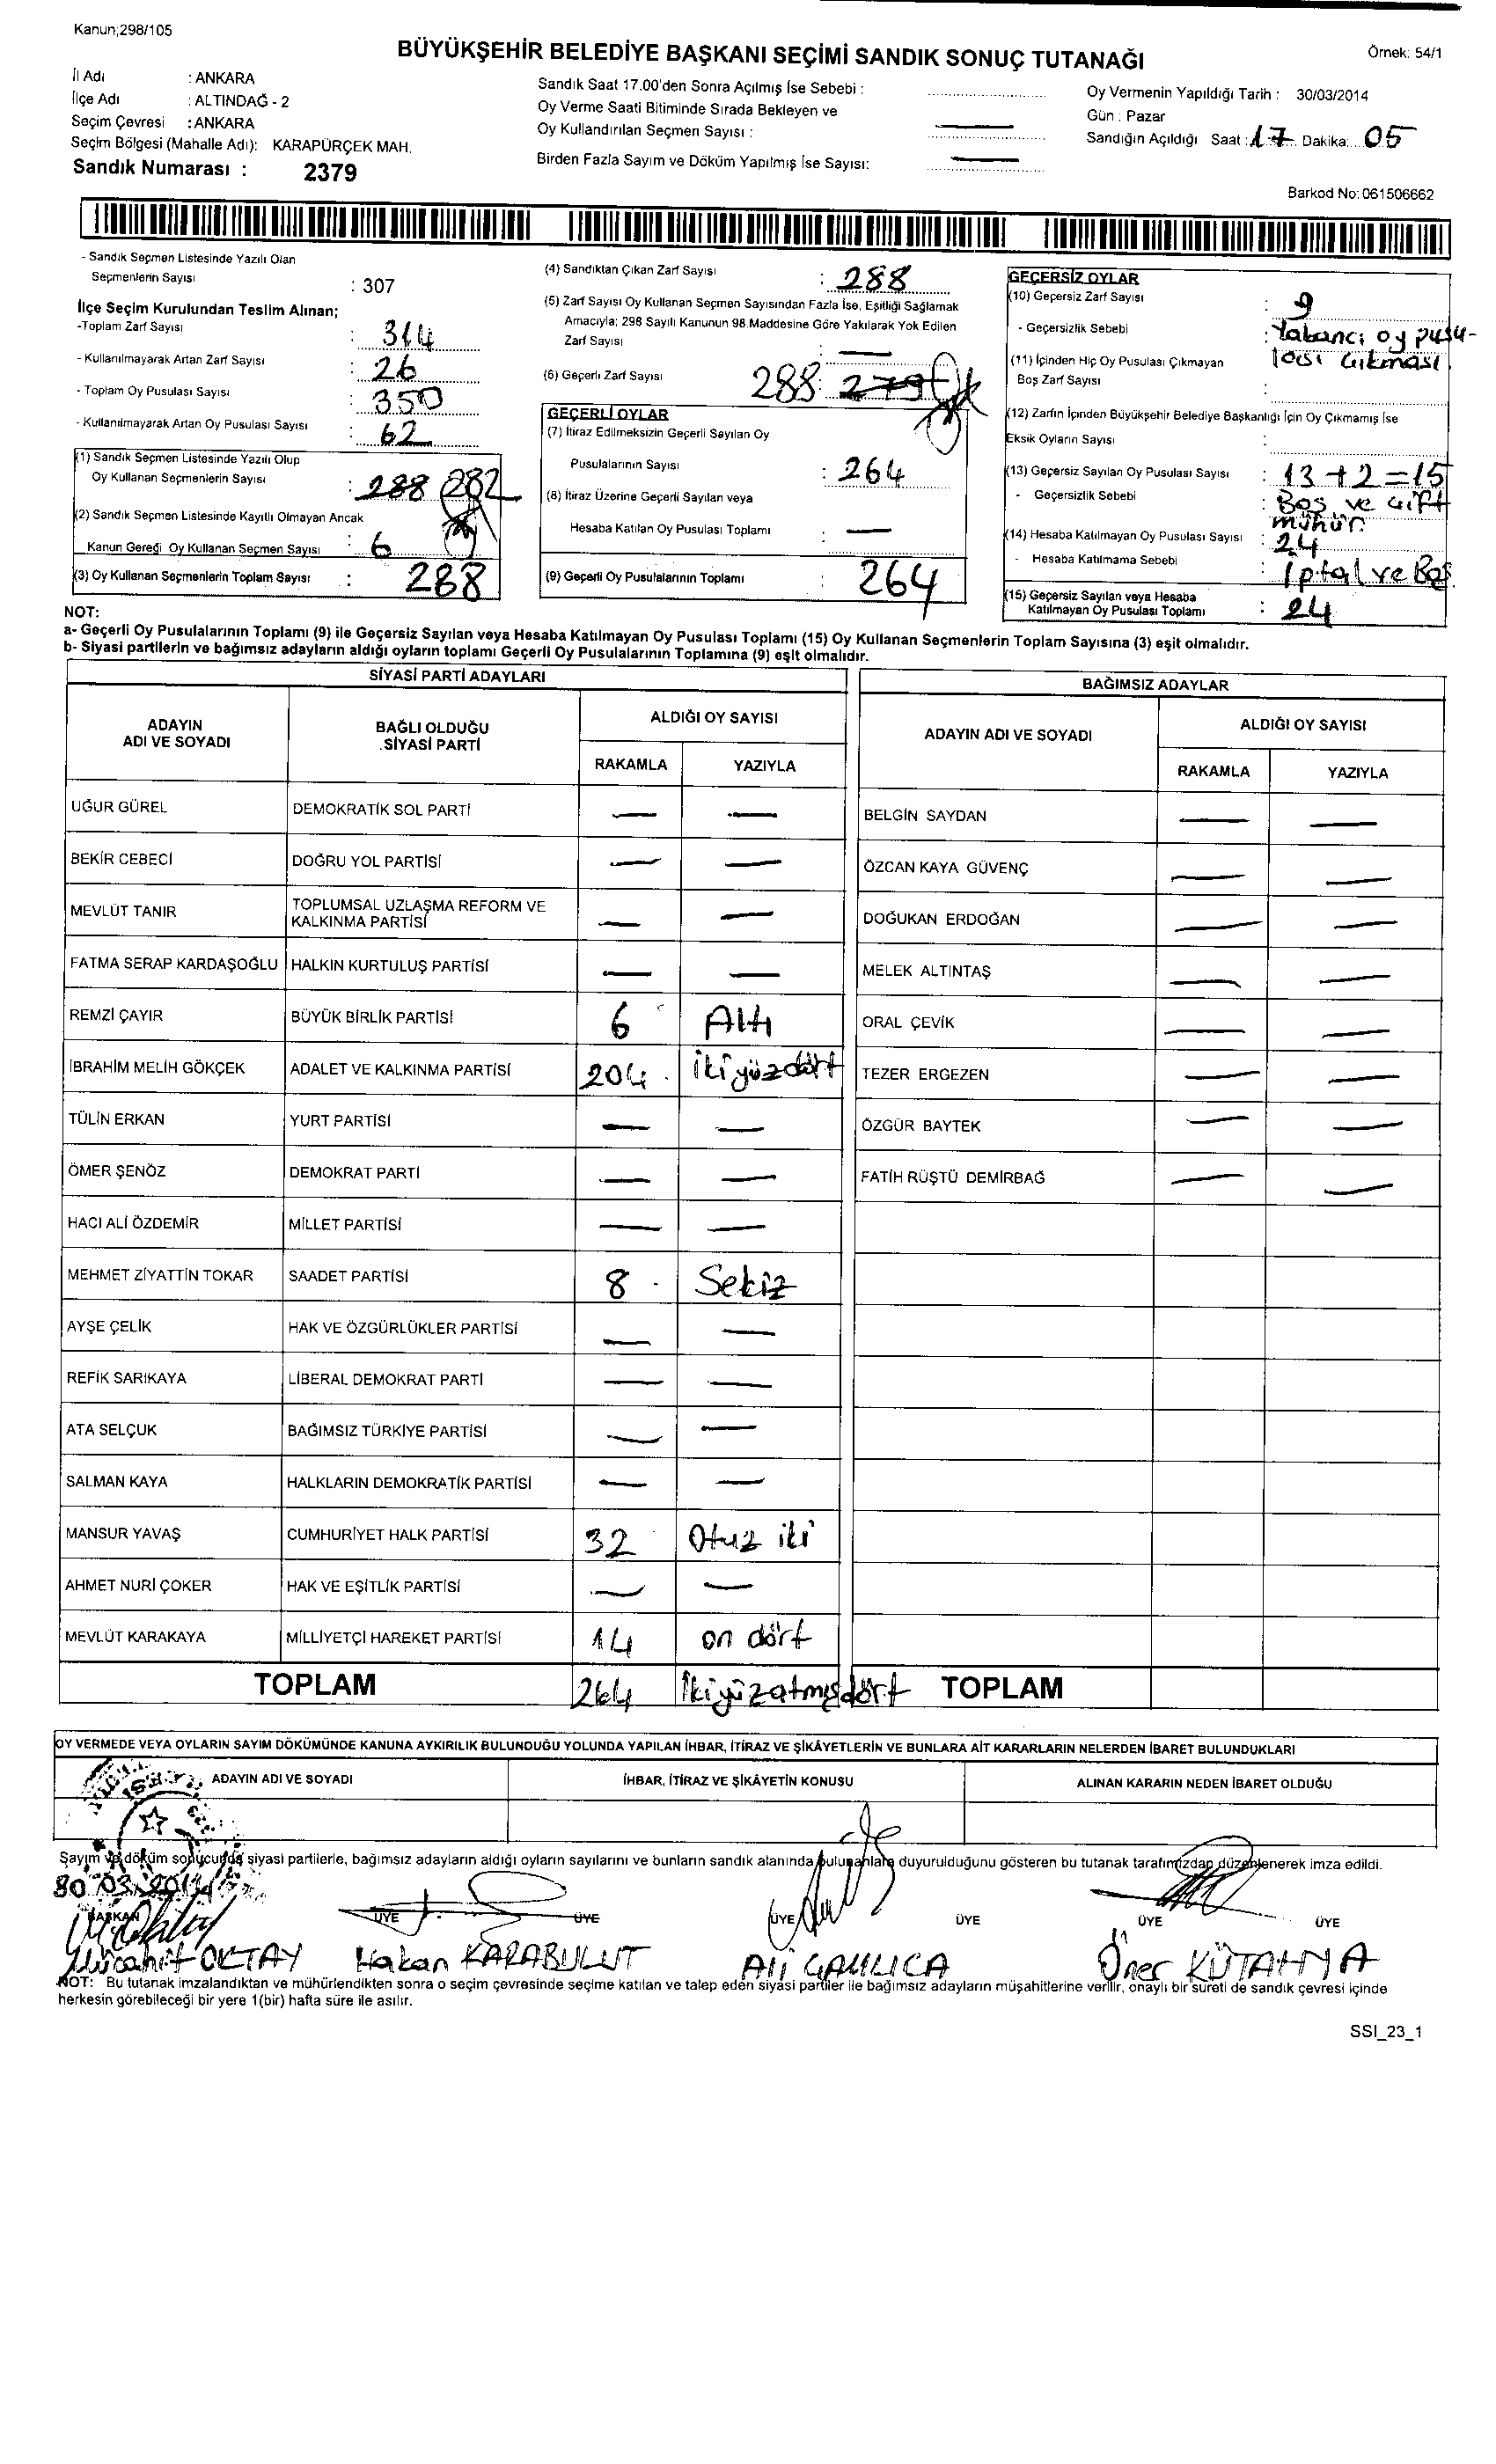 Kanun;298/105
BÜYÜKŞEHİR BELEDİYE BAŞKANI SEÇİMİ SANDIK SONUÇ TUTANAĞI
Örnek: 54/1
İl Adı : ANKARA
İlçe Adı : ALTINDAĞ - 2
Seçim Çevresi : ANKARA
Seçim Bölgesi (Mahalle Adı): KARAPÜRÇEK MAH.
Sandık Numarası : 2379
Sandık Saat 17.00'den Sonra Açılmış İse Sebebi :
Oy Verme Saati Bitiminde Sırada Bekleyen ve
Oy Kullandırılan Seçmen Sayısı : —
Birden Fazla Sayım ve Döküm Yapılmış İse Sayısı: —
Oy Vermenin Yapıldığı Tarih : 30/03/2014
Gün : Pazar
Sandığın Açıldığı Saat : 17 Dakika: 05
Barkod No: 061506662
- Sandık Seçmen Listesinde Yazılı Olan
Seçmenlerin Sayısı : 307
İlçe Seçim Kurulundan Teslim Alınan;
-Toplam Zarf Sayısı : 314
- Kullanılmayarak Artan Zarf Sayısı : 26
- Toplam Oy Pusulası Sayısı : 350
- Kullanılmayarak Artan Oy Pusulası Sayısı : 62
(1) Sandık Seçmen Listesinde Yazılı Olup
Oy Kullanan Seçmenlerin Sayısı : 288 282
(2) Sandık Seçmen Listesinde Kayıtlı Olmayan Ancak
Kanun Gereği Oy Kullanan Seçmen Sayısı : 6
(3) Oy Kullanan Seçmenlerin Toplam Sayısı : 288
(4) Sandıktan Çıkan Zarf Sayısı : 288
(5) Zarf Sayısı Oy Kullanan Seçmen Sayısından Fazla İse, Eşitliği Sağlamak
Amacıyla; 298 Sayılı Kanunun 98.Maddesine Göre Yakılarak Yok Edilen
Zarf Sayısı : —
(6) Geçerli Zarf Sayısı 288 : 279
GEÇERLİ OYLAR
(7) İtiraz Edilmeksizin Geçerli Sayılan Oy
Pusulalarının Sayısı : 264
(8) İtiraz Üzerine Geçerli Sayılan veya
Hesaba Katılan Oy Pusulası Toplamı : —
(9) Geçerli Oy Pusulalarının Toplamı : 264
GEÇERSİZ OYLAR
(10) Geçersiz Zarf Sayısı : 9
- Geçersizlik Sebebi : Yabancı oy pusu-
lası çıkması
(11) İçinden Hiç Oy Pusulası Çıkmayan
Boş Zarf Sayısı :
(12) Zarfın İçinden Büyükşehir Belediye Başkanlığı İçin Oy Çıkmamış İse
Eksik Oyların Sayısı :
(13) Geçersiz Sayılan Oy Pusulası Sayısı : 13+2=15
- Geçersizlik Sebebi : Boş ve çift
mühür
(14) Hesaba Katılmayan Oy Pusulası Sayısı : 24
- Hesaba Katılmama Sebebi : İptal ve Boş
(15) Geçersiz Sayılan veya Hesaba
Katılmayan Oy Pusulası Toplamı : 24
NOT:
a- Geçerli Oy Pusulalarının Toplamı (9) ile Geçersiz Sayılan veya Hesaba Katılmayan Oy Pusulası Toplamı (15) Oy Kullanan Seçmenlerin Toplam Sayısına (3) eşit olmalıdır.
b- Siyasi partilerin ve bağımsız adayların aldığı oyların toplamı Geçerli Oy Pusulalarının Toplamına (9) eşit olmalıdır.
SİYASİ PARTİ ADAYLARI
ADAYIN
ADI VE SOYADI
BAĞLI OLDUĞU
SİYASİ PARTİ
ALDIĞI OY SAYISI
RAKAMLA YAZIYLA
UĞUR GÜREL DEMOKRATİK SOL PARTİ — —
BEKİR CEBECİ DOĞRU YOL PARTİSİ — —
MEVLÜT TANIR TOPLUMSAL UZLAŞMA REFORM VE
KALKINMA PARTİSİ — —
FATMA SERAP KARDAŞOĞLU HALKIN KURTULUŞ PARTİSİ — —
REMZİ ÇAYIR BÜYÜK BİRLİK PARTİSİ 6 Altı
İBRAHİM MELİH GÖKÇEK ADALET VE KALKINMA PARTİSİ 204 ikiyüzdört
TÜLİN ERKAN YURT PARTİSİ — —
ÖMER ŞENÖZ DEMOKRAT PARTİ — —
HACI ALİ ÖZDEMİR MİLLET PARTİSİ — —
MEHMET ZİYATTİN TOKAR SAADET PARTİSİ 8 Sekiz
AYŞE ÇELİK HAK VE ÖZGÜRLÜKLER PARTİSİ — —
REFİK SARIKAYA LİBERAL DEMOKRAT PARTİ — —
ATA SELÇUK BAĞIMSIZ TÜRKİYE PARTİSİ — —
SALMAN KAYA HALKLARIN DEMOKRATİK PARTİSİ — —
MANSUR YAVAŞ CUMHURİYET HALK PARTİSİ 32 Otuz iki
AHMET NURİ ÇOKER HAK VE EŞİTLİK PARTİSİ — —
MEVLÜT KARAKAYA MİLLİYETÇİ HAREKET PARTİSİ 14 on dört
TOPLAM 264 İkiyüzatmışdört
BAĞIMSIZ ADAYLAR
ADAYIN ADI VE SOYADI
ALDIĞI OY SAYISI
RAKAMLA YAZIYLA
BELGİN SAYDAN — —
ÖZCAN KAYA GÜVENÇ — —
DOĞUKAN ERDOĞAN — —
MELEK ALTINTAŞ — —
ORAL ÇEVİK — —
TEZER ERGEZEN — —
ÖZGÜR BAYTEK — —
FATİH RÜŞTÜ DEMİRBAĞ — —
TOPLAM
OY VERMEDE VEYA OYLARIN SAYIM DÖKÜMÜNDE KANUNA AYKIRILIK BULUNDUĞU YOLUNDA YAPILAN İHBAR, İTİRAZ VE ŞİKÂYETLERİN VE BUNLARA AİT KARARLARIN NELERDEN İBARET BULUNDUKLARI
ADAYIN ADI VE SOYADI İHBAR, İTİRAZ VE ŞİKÂYETİN KONUSU ALINAN KARARIN NEDEN İBARET OLDUĞU
Sayım ve döküm sonucunda siyasi partilerle, bağımsız adayların aldığı oyların sayılarını ve bunların sandık alanında bulunanlara duyurulduğunu gösteren bu tutanak tarafımızdan düzenlenerek imza edildi.
30.03.2014
BAŞKAN ÜYE ÜYE ÜYE ÜYE ÜYE ÜYE
Mücahit OKTAY Hakan KARABULUT Ali ÇAMLICA Öner KÜTAHYA
NOT: Bu tutanak imzalandıktan ve mühürlendikten sonra o seçim çevresinde seçime katılan ve talep eden siyasi partiler ile bağımsız adayların müşahitlerine verilir, onaylı bir sureti de sandık çevresi içinde
herkesin görebileceği bir yere 1(bir) hafta süre ile asılır.
SSI_23_1